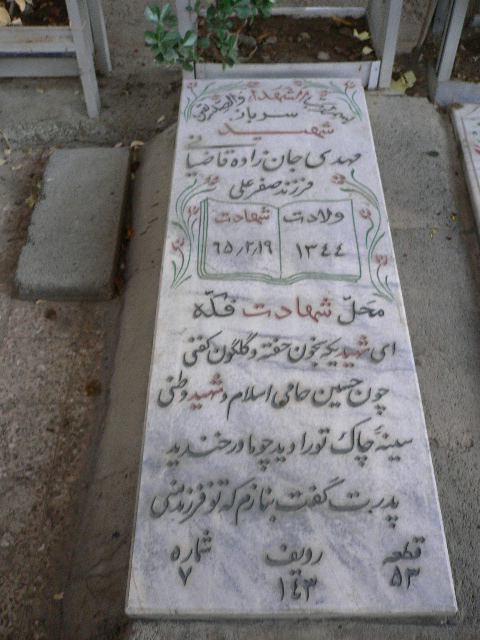 الشهداء والصدیقین
سرباز
شهید
مهدی جان زاده قاضیا
فرزند صفر علی
ولادت شهادت
۱۳۴۴ ۶۵/۲/۱۹
محلّ شهادت فکّه
ای شهیدیکه بخون خفته و گلگون کفنی
چون حسین حامی اسلام و شهید وطنی
سینهٔ چاک تو را دید چو مادر خندید
پدرت گفت بنازم که تو فرزند منی
قطعه ردیف شماره
۵۳ ۱۴۳ ۷